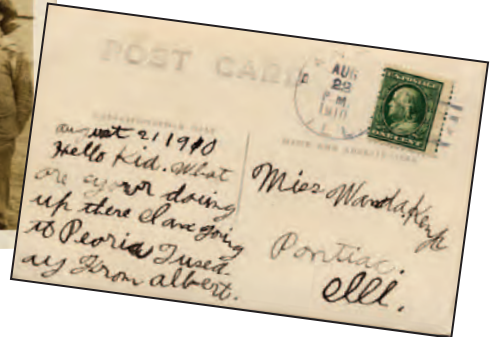 POST CARD
AUG
23
P M
1910
U.S. POSTAGE
ONE CENT
CORRESPONDENCE HERE
NAME AND ADDRESS HERE
august 21 1910
Hello Kid. What
are your doing
up there I am going
to Peoria Tuesd
ay From albert.
Miss Wanda
Pontiac.
Ill.